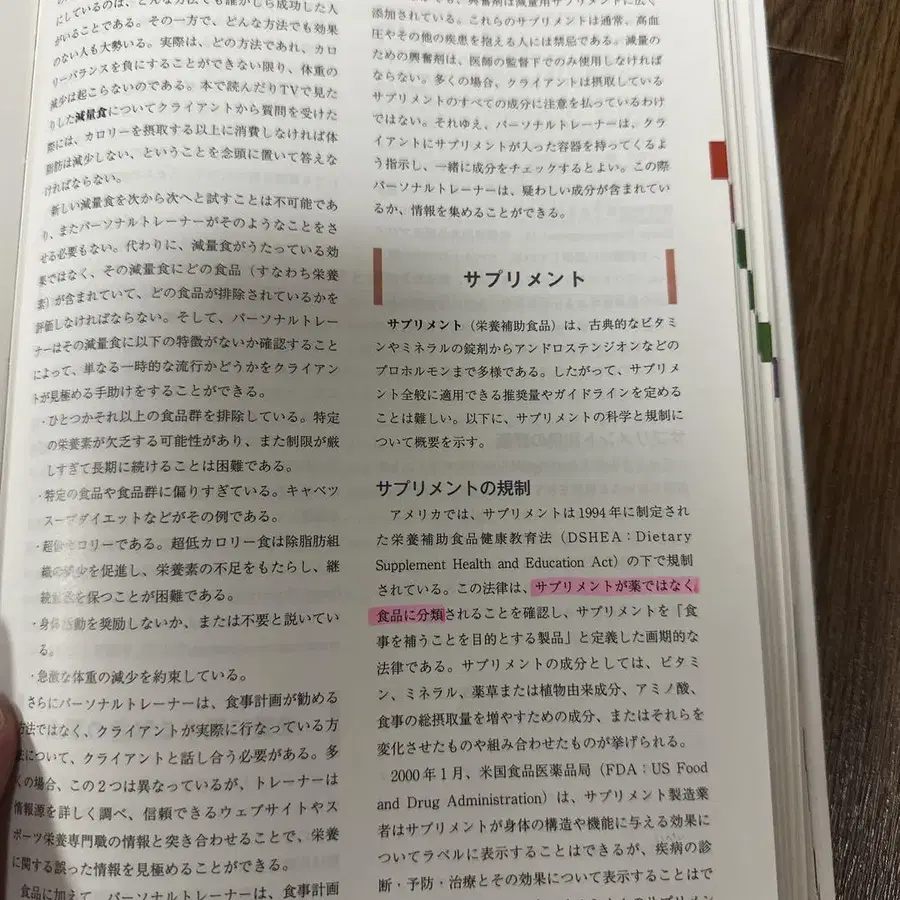 にしているのは、どんな方法でも誰かしら成功した人
がいることである。その一方で、どんな方法でも効果
のない人も大勢いる。実際は、どの方法であれ、カロ
リーバランスを負にすることができない限り、体重の
減少は起こらないのである。本で読んだりTVで見た
りした減量食についてクライアントから質問を受けた
際には、カロリーを摂取する以上に消費しなければ体
脂肪は減少しない、ということを念頭に置いて答えな
ければならない。
新しい減量食を次から次へと試すことは不可能であ
り、またパーソナルトレーナーがそのようなことをさ
せる必要もない。代わりに、減量食がうたっている効
果ではなく、その減量食にどの食品（すなわち栄養
素）が含まれていて、どの食品が排除されているかを
評価しなければならない。そして、パーソナルトレー
ナーはその減量食に以下の特徴がないか確認すること
によって、単なる一時的な流行かどうかをクライアン
トが見極める手助けをすることができる。
・ひとつかそれ以上の食品群を排除している。特定
の栄養素が欠乏する可能性があり、また制限が厳
しすぎて長期に続けることは困難である。
・特定の食品や食品群に偏りすぎている。キャベツ
スープダイエットなどがその例である。
・超低カロリーである。超低カロリー食は除脂肪組
織の減少を促進し、栄養素の不足をもたらし、継
を保つことが困難である。
・身体活動を奨励しないか、または不要と説いてい
る。
・急激な体重の減少を約束している。
さらにパーソナルトレーナーは、食事計画が勧める
方法ではなく、クライアントが実際に行なっている方
法について、クライアントと話し合う必要がある。多
くの場合、この2つは異なっているが、トレーナーは
情報源を詳しく調べ、信頼できるウェブサイトやス
ポーツ栄養専門職の情報と突き合わせることで、栄養
に関する誤った情報を見極めることができる。
食品に加えて、パーソナルトレーナーは、食事計画
興奮剤は減量用サプリメントに広く
添加されている。これらのサプリメントは通常、高血
圧やその他の疾患を抱える人には禁忌である。減量の
ための興奮剤は、医師の監督下でのみ使用しなければ
ならない。多くの場合、クライアントは摂取している
サプリメントのすべての成分に注意を払っているわけ
ではない。それゆえ、パーソナルトレーナーは、クラ
イアントにサプリメントが入った容器を持ってくるよ
う指示し、一緒に成分をチェックするとよい。この際
パーソナルトレーナーは、疑わしい成分が含まれてい
るか、情報を集めることができる。
サプリメント
サプリメント（栄養補助食品）は、古典的なビタミ
ンやミネラルの錠剤からアンドロステンジオンなどの
プロホルモンまで多様である。したがって、サプリメ
ント全般に適用できる推奨量やガイドラインを定める
ことは難しい。以下に、サプリメントの科学と規制に
ついて概要を示す。
サプリメントの規制
アメリカでは、サプリメントは1994年に制定され
た栄養補助食品健康教育法（DSHEA：Dietary
Supplement Health and Education Act）の下で規制
されている。この法律は、サプリメントが薬ではなく、
食品に分類されることを確認し、サプリメントを「食
事を補うことを目的とする製品」と定義した画期的な
法律である。サプリメントの成分としては、ビタミ
ン、ミネラル、薬草または植物由来成分、アミノ酸、
食事の総摂取量を増やすための成分、またはそれらを
変化させたものや組み合わせたものが挙げられる。
2000年1月、米国食品医薬品局（FDA：US Food
and Drug Administration）は、サプリメント製造業
者はサプリメントが身体の構造や機能に与える効果に
ついてラベルに表示することはできるが、疾病の診
断・予防・治療とその効果について表示することはで